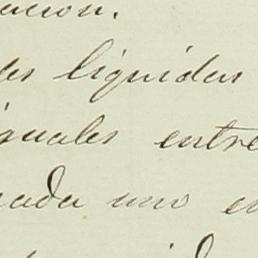 acion.
des liquidas
iguales entre
cada uno en